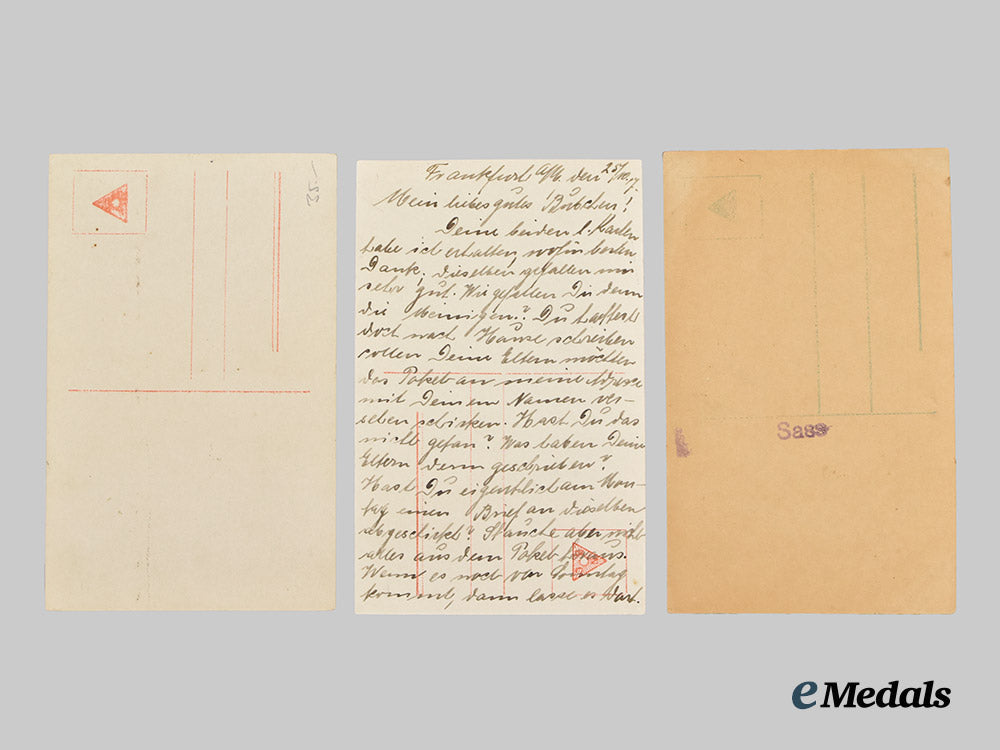 35.-
Frankfurt a/M. den 25/10. 17.
Mein liebes gutes Bübchen!
Deine beiden l. Karten
habe ich erhalten, wofür besten
Dank; dieselben gefallen mir
sehr gut. Wie gefallen Dir denn
die Meinigen? Du hattest
doch nach Hause schreiben
sollen Deine Eltern möchten
das Paket an meine Adresse
mit Deinem Namen ver-
sehen schicken. Hast Du das
nicht getan? Was haben Deine
Eltern denn geschrieben?
Hast Du eigentlich am Mon-
tag einen Brief an dieselben
abgeschickt? aber nicht
alles aus dem Paket heraus.
Wenn es noch vor Sonntag
kommt, dann lasse es dort.
Sass
eMedals